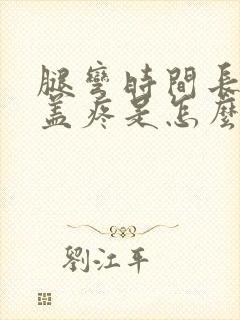 腿彎時間長
蓋疼是怎麼
劉江平